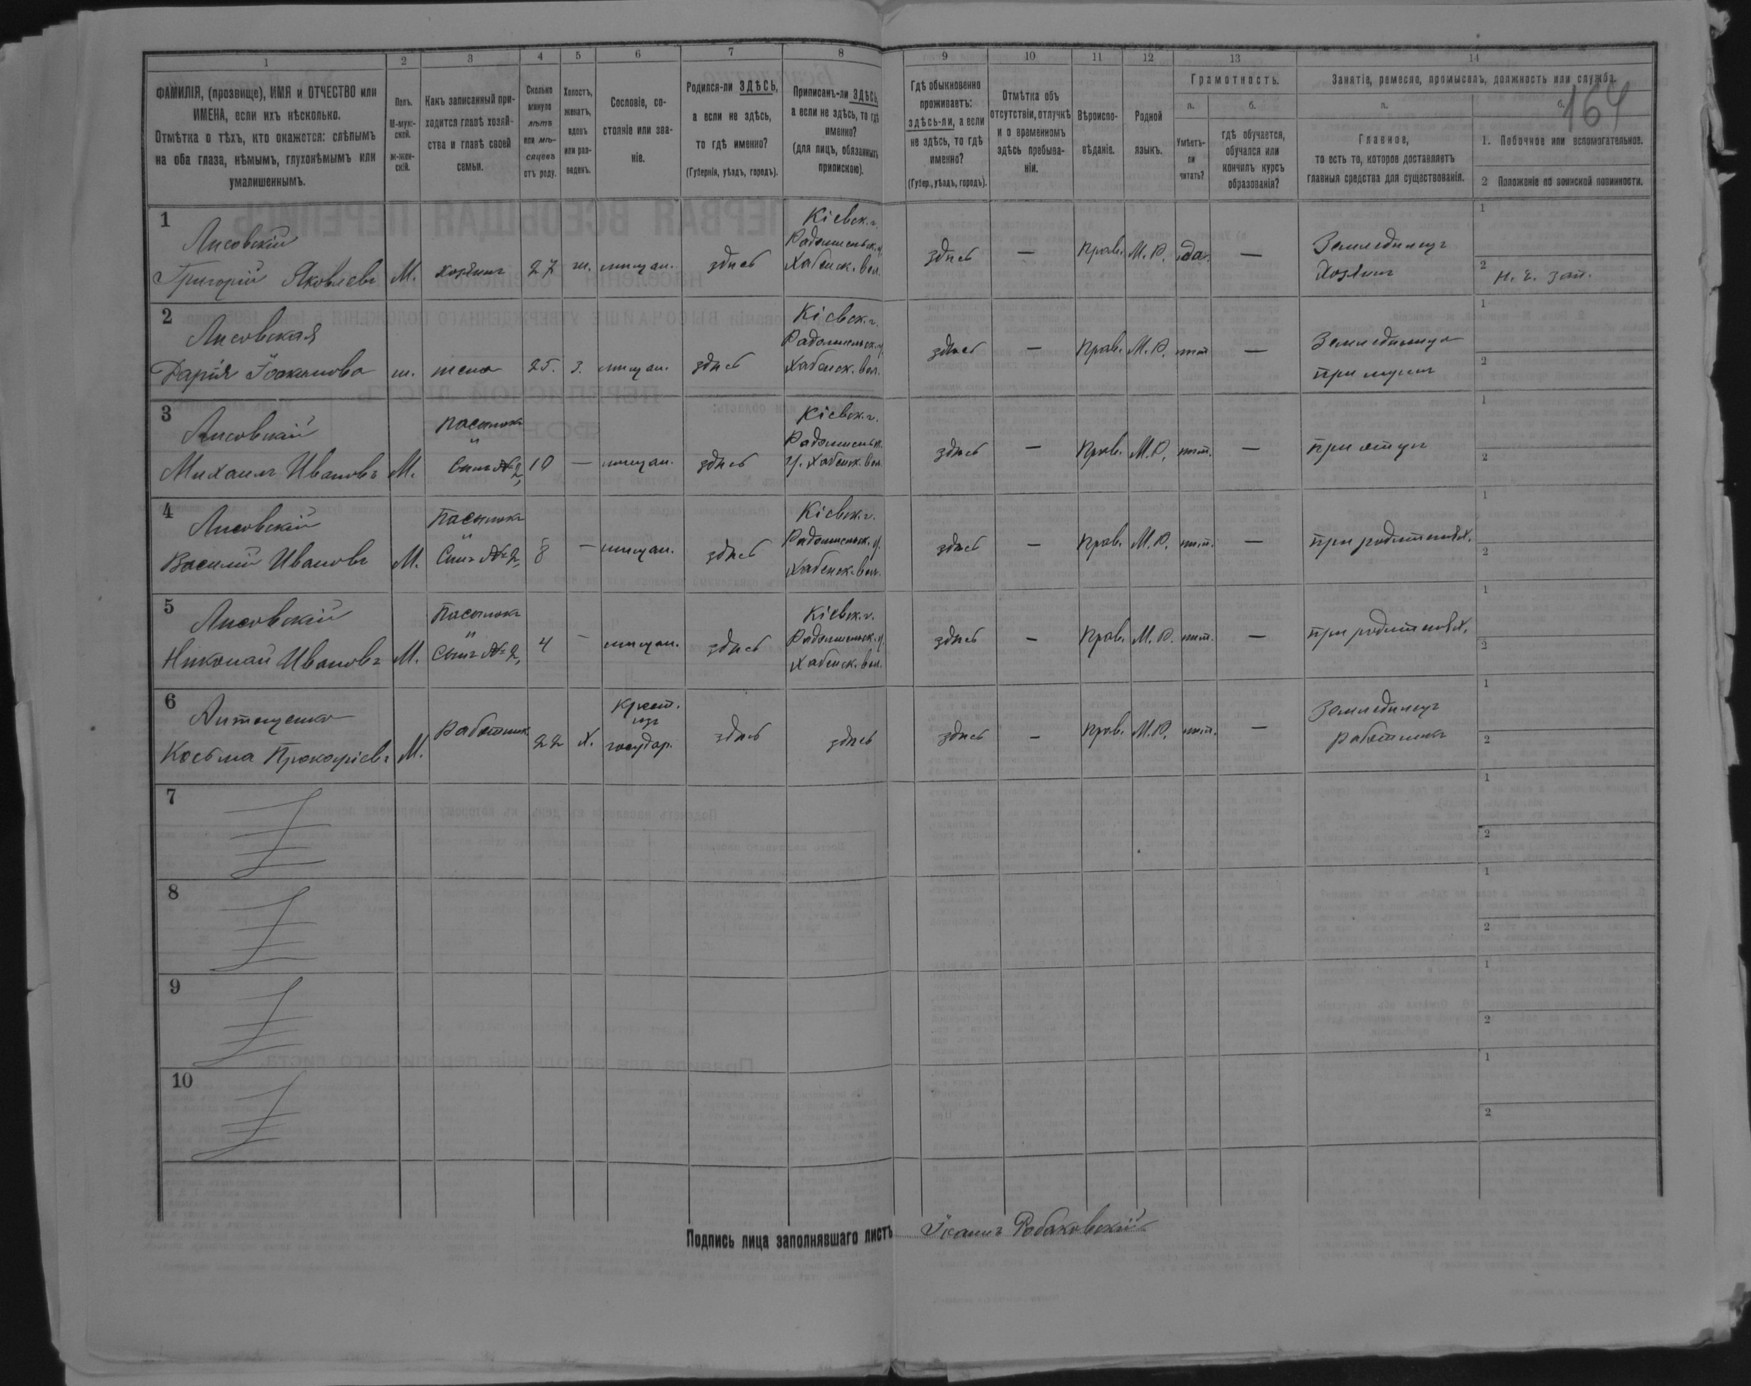 164
1 2 3 4 5 6 7 8 9 10 11 12 13 14
ФАМИЛІЯ, (прозвище), ИМЯ и ОТЧЕСТВО или
ИМЕНА, если ихъ нѣсколько.
Отмѣтка о тѣхъ, кто окажется: слѣпымъ
на оба глаза, нѣмымъ, глухонѣмымъ или
умалишеннымъ.
Полъ.
М-муж-
ской.
ж-жен-
скій.
Какъ записанный при-
ходится главѣ хозяй-
ства и главѣ своей
семьи.
Сколько
минуло
лѣтъ
или мѣ-
сяцевъ
отъ роду.
Холостъ,
женатъ,
вдовъ
или раз-
веденъ.
Сословіе, со-
стояніе или зва-
ніе.
Родился-ли ЗДѢСЬ,
а если не здѣсь,
то гдѣ именно?
(Губернія, уѣздъ, городъ).
Приписанъ-ли ЗДѢСЬ,
а если не здѣсь, то гдѣ
именно?
(для лицъ, обязанныхъ
припискою).
Гдѣ обыкновенно
проживаетъ:
здѣсь-ли, а если
не здѣсь, то гдѣ
именно?
(Губер., уѣздъ, городъ).
Отмѣтка объ
отсутствіи, отлучкѣ
и о временномъ
здѣсь пребыва-
ніи.
Вѣроиспо-
вѣданіе.
Родной
языкъ.
Грамотность.
а.
Умѣетъ-
ли
читать?
б.
гдѣ обучается,
обучался или
кончилъ курсъ
образованія?
Занятіе, ремесло, промыселъ, должность или служба.
а.
Главное,
то есть то, которое доставляетъ
главныя средства для существованія.
б.
1. Побочное или вспомогательное.
2 Положеніе по воинской повинности.
1
Лисовскій
Григорій Яковлевъ М. хозяинъ 27 ж. мѣщан. здѣсь
Кіевск. г.
Радомысльск. у.
Хабенск. вол.
здѣсь — Прав. М. Р. да. —
Земледѣлецъ
Хозяинъ
1
2 н. ч. зап.
2
Лисовская
Дарія Іоакимова ж. жена 25. з. мѣщан. здѣсь
Кіевск. г.
Радомысльск. у.
Хабенск. вол.
здѣсь — Прав. М. Р. нѣт —
Земледѣлица
при мужѣ
1
2
3
Лисовскій
Михаилъ Ивановъ М.
Пасынокъ
и
Сынъ № 2, 10 — мѣщан. здѣсь
Кіевск. г.
Радомысльск.
у. Хабенск. вол.
здѣсь — Прав. М. Р. нѣт. —
при отцѣ
1
2
4
Лисовскій
Василій Ивановъ М.
Пасынокъ
и
Сынъ № 2, 8 — мѣщан. здѣсь
Кіевск. г.
Радомысльск. у.
Хабенск. вол.
здѣсь — Прав. М. Р. нѣт. —
при родителях.
1
2
5
Лисовскій
Николай Ивановъ М.
Пасынокъ
и
Сынъ № 2, 4 — мѣщан. здѣсь
Кіевск. г.
Радомысльск. у.
Хабенск. вол.
здѣсь — Прав. М. Р. нѣт. —
при родителях.
1
2
6
Антощенко
Косьма Прокофіевъ М. Работник 22 х.
Крест.
изъ
государ.
здѣсь здѣсь здѣсь — Прав. М. Р. нѣт. —
Земледѣлецъ
работникъ
1
2
7
1
2
8
1
2
9
1
2
10
1
2
Подпись лица заполнявшаго листъ Іоаннъ Рабаковскій